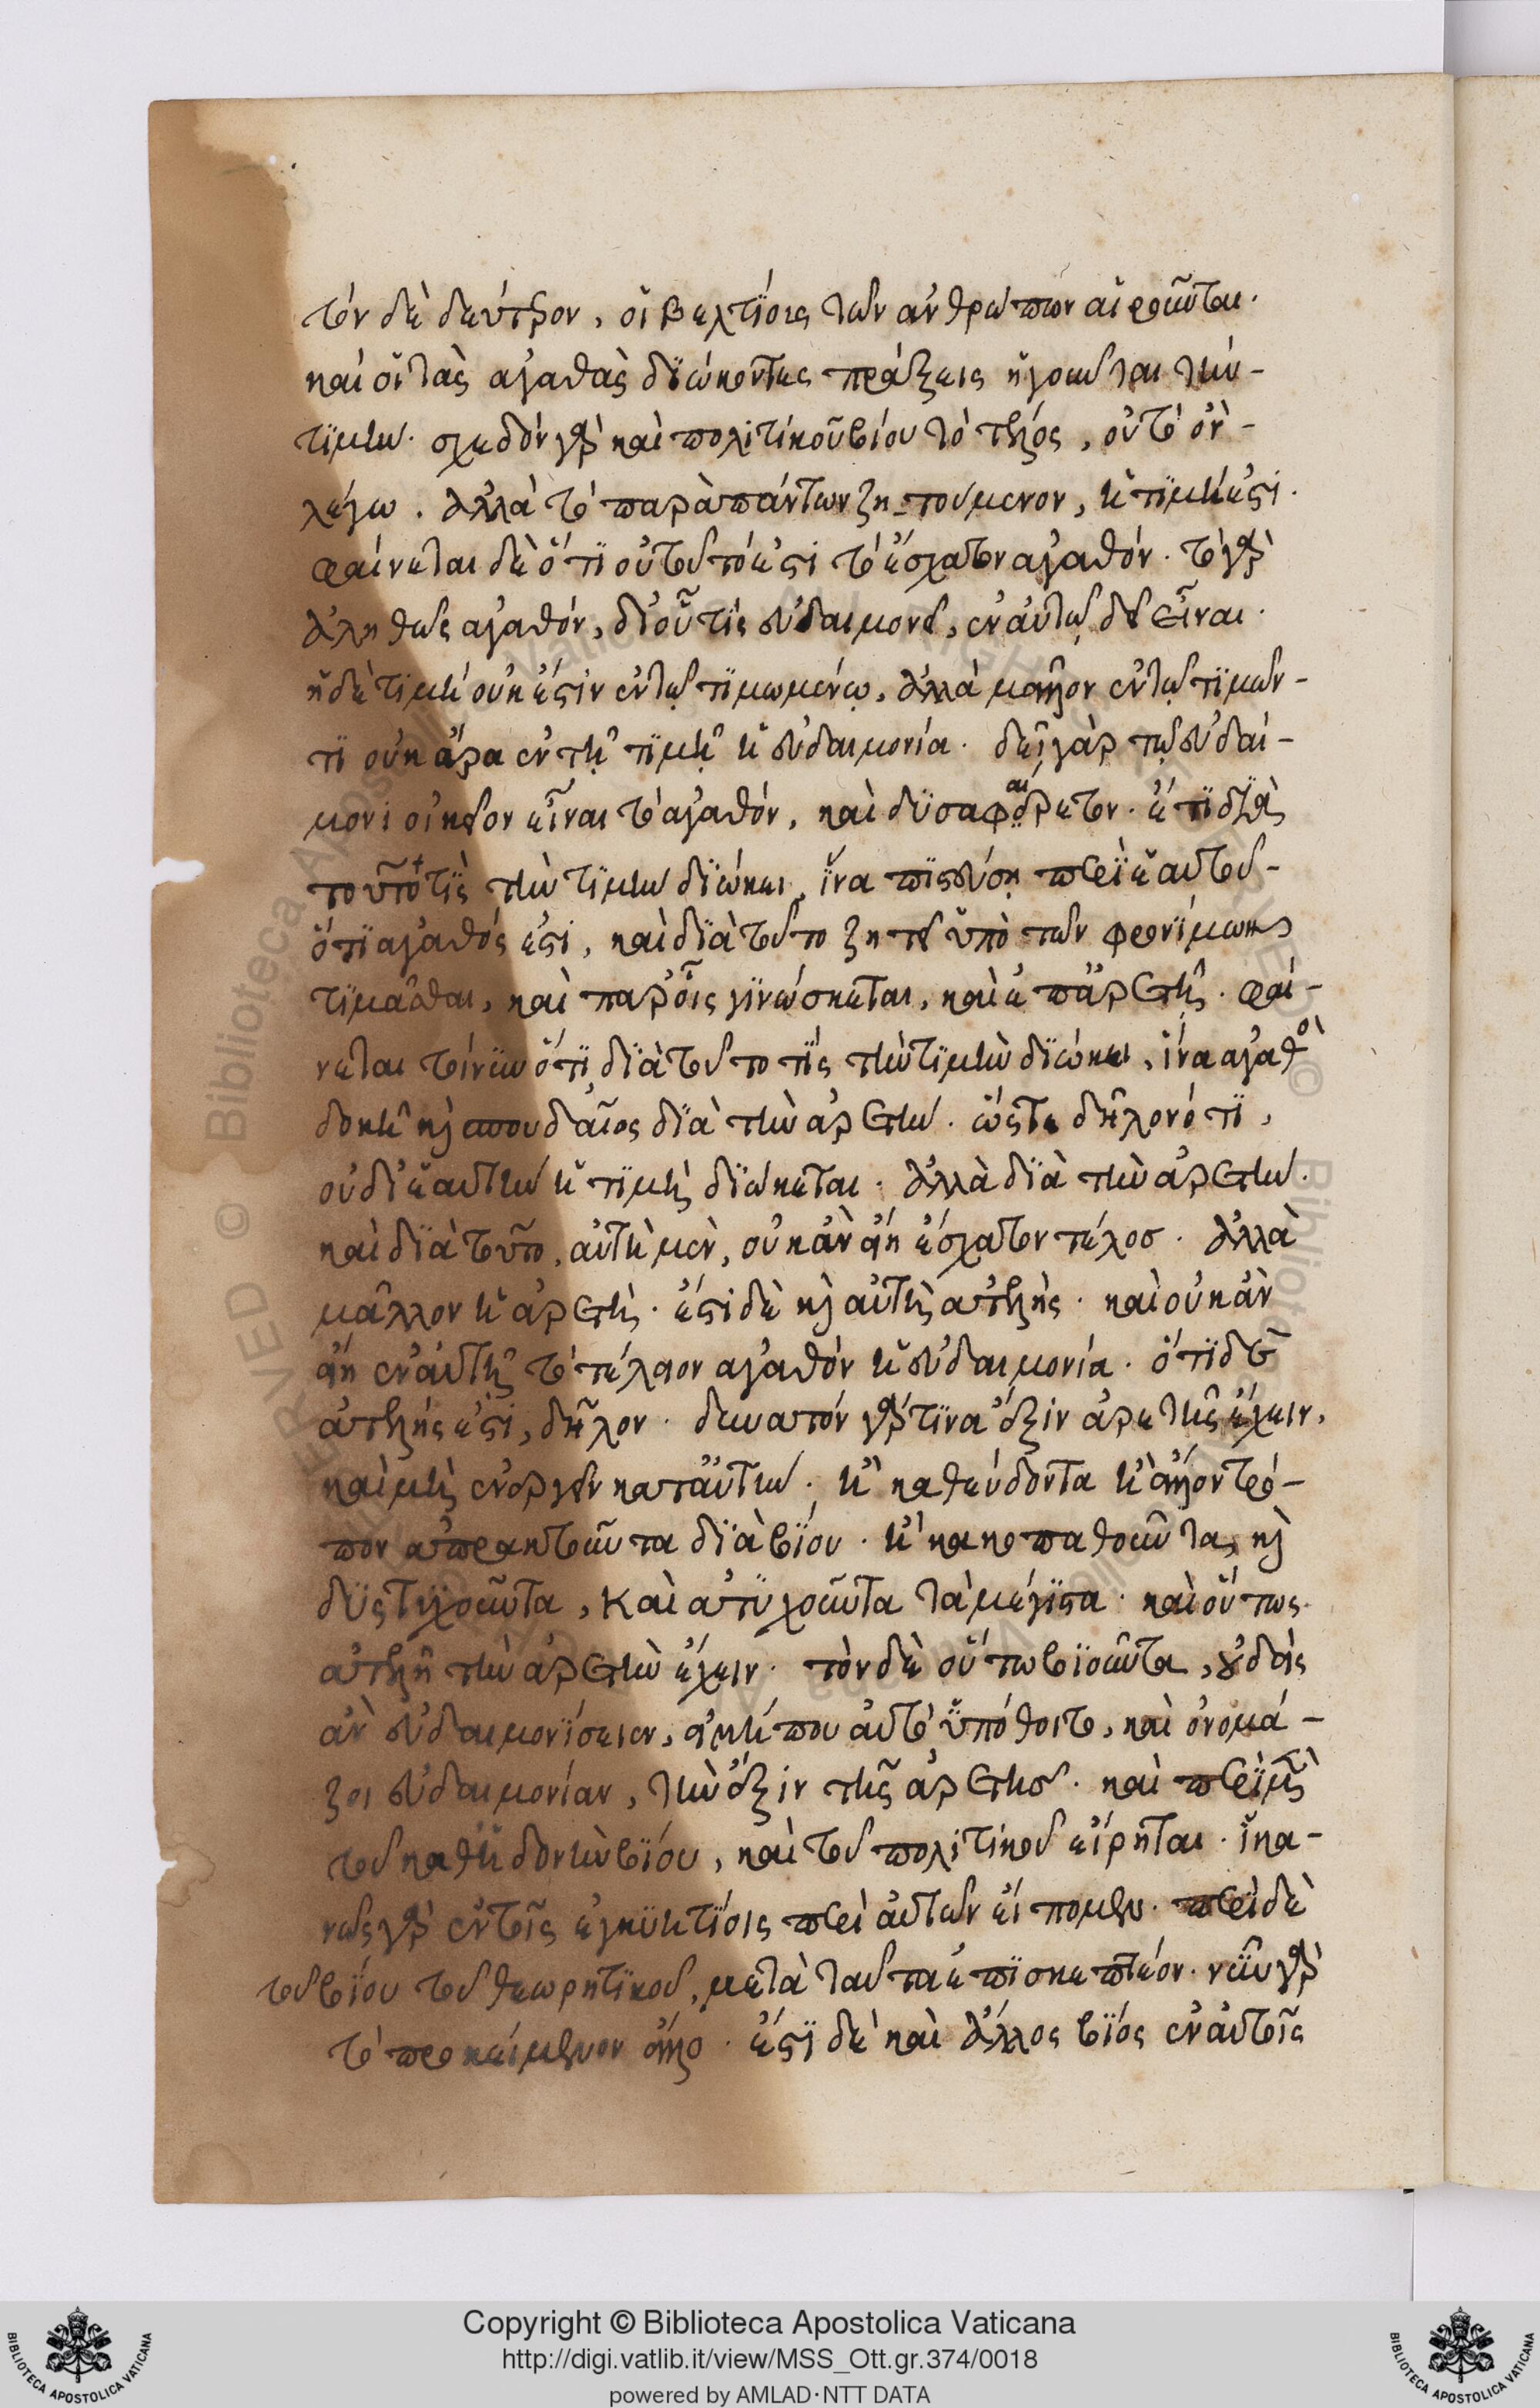 τὸν δὲ δεύτερον, οἱ βελτίους τῶν ἀνθρώπων αἱροῦνται·
καὶ οἱ τὰς ἀγαθὰς διώκοντες πράξεις ἡγοῦνται τὴν
τιμήν. σχεδὸν γὰρ καὶ πολιτικοῦ βίου τὸ τέλος, οὐ τὸ ὂν
λέγω. ἀλλὰ τὸ παρὰ πάντων ζητούμενον, ἡ τιμή ἐστι.
φαίνεται δὲ ὅτι οὐ τοῦτό ἐστι τὸ ἔσχατον ἀγαθόν. τὸ γὰρ
ἀληθῶς ἀγαθόν, δι' οὗ τὶς εὐδαιμονεῖ, ἐν αὐτῷ δεῖ εἶναι.
ἡ δὲ τιμὴ οὐκ ἔστιν ἐν τῷ τιμωμένῳ, ἀλλὰ μᾶλλον ἐν τῷ τιμῶν-
τι οὐκ ἄρα ἐν τῇ τιμῇ ἡ εὐδαιμονία. δεῖ γὰρ τῷ εὐδαί-
μονι οἰκεῖον εἶναι τὸ ἀγαθόν, καὶ δυσαφαίρετον. ἔτι διὰ
τοῦτό τις τὴν τιμὴν διώκει, ἵνα πιστεύσῃ περὶ ἑαυτοῦ
ὅτι ἀγαθός ἐστι, καὶ διὰ τοῦτο ζητεῖ ὑπὸ τῶν φρονίμων
τιμᾶσθαι, καὶ παρ' οἷς γινώσκεται, καὶ ἐπ' ἀρετῇ. φαί-
νεται τοίνυν ὅτι διὰ τοῦτο τὶς τὴν τιμὴν διώκει, ἵνα ἀγαθὸ
δοκῇ καὶ σπουδαῖος διὰ τὴν ἀρετήν. ὥστε δηλονότι,
οὐ δι' ἑαυτὴν ἡ τιμὴ διώκεται. ἀλλὰ διὰ τὴν ἀρετήν.
καὶ διὰ τοῦτο, αὐτὴ μὲν, οὐκ ἂν εἴη ἔσχατον τέλος. ἀλλὰ
μᾶλλον ἡ ἀρετή. ἔστι δὲ καὶ αὐτὴ ἀτελής. καὶ οὐκ ἂν
εἴη ἐν αὐτῇ τὸ τέλειον ἀγαθὸν ἡ εὐδαιμονία. ὅτι δὲ
ἀτελής ἐστι, δῆλον. δυνατὸν γάρ τινα ἕξιν ἀρετῆς ἔχειν,
καὶ μὴ ἐνεργεῖν κατ' αὐτήν. ἢ καθεύδοντα ἢ ἄλλον τρό-
πον ἀπρακτοῦντα διὰ βίου. ἢ κακοπαθοῦντα, καὶ
δυστυχοῦντα, καὶ ἀτυχοῦντα τὰ μέγιστα. καὶ οὕτως
ἀτελῆ τὴν ἀρετὴν ἔχειν. τὸν δὲ οὕτω βιοῦντα, οὐδεὶς
ἂν εὐδαιμονίσειεν, εἰ μή που αὐτὸ ὑπόθοιτο, καὶ ὀνομά-
ζοι εὐδαιμονίαν, τὴν ἕξιν τῆς ἀρετῆς. καὶ περὶ μὲν
τοῦ καθ' ἡδονὴν βίου, καὶ τοῦ πολιτικοῦ εἴρηται. ἱκα-
νῶς γὰρ ἐν τοῖς ἐγκυκλίοις περὶ αὐτῶν εἴπομεν. περὶ δὲ
τοῦ βίου τοῦ θεωρητικοῦ, μετὰ ταῦτα ἐπισκεπτέον. νῦν γὰρ
τὸ προκείμενον ἄλλο. ἔστι δὲ καὶ ἄλλος βίος ἐν αὐτοῖς
Copyright © Biblioteca Apostolica Vaticana
http://digi.vatlib.it/view/MSS_Ott.gr.374/0018
powered by AMLAD·NTT DATA